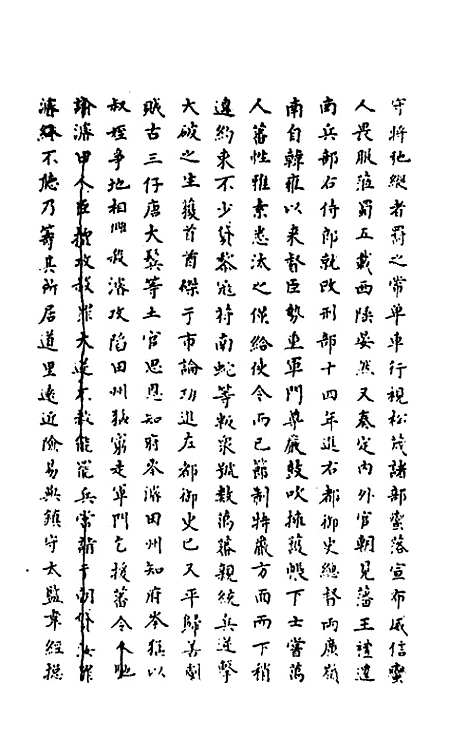 守將弛縱者罰之常單車行視松茂諸部蠻落宣布威信蠻
人畏服蒞蜀五載西陲晏然又奏定內外官朝見藩王禮遷
南兵部右侍郎就改刑部十四年進右都御史總督兩廣嶺
南自韓雍以來督臣勢重軍門尊嚴鼓吹擁護帳下士嘗萬
人蕃性雅素悉汰之僅給使令而已節制特嚴方面而下稍
違約束不少貸蒼寇將南蛇等叛眾號數萬蕃親統兵逆擊
大破之生獲首酋磔于市論功進左都御史已又平歸善劇
賊古三仔唐大鬢等土官思恩知府岑濬田州知府岑猛以
叔姪爭地相仇殺濬攻陷田州猛窮走軍門乞援蕃令
諭濬曰人臣 攻 罪大逆不 能罷兵當請于朝 汝罪
濬終不聽乃籌其所居道里遠近險易與鎮守太監韋經總